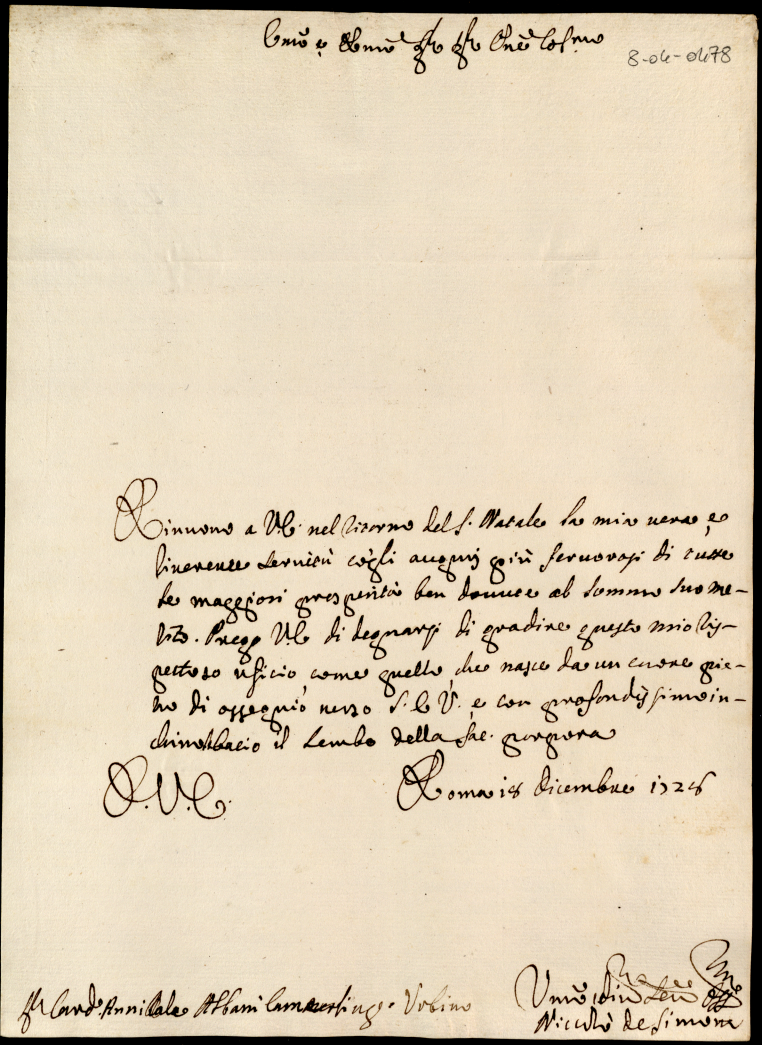 Emõ e Rmõ Sig.r Sig.r Pñe Col.mo
8-04-0478
Rinuovo a V.E. nel ritorno del S. Natale la mia vera, e
riverente servitù cogli auguri più fervorosi di tutte
le maggiori prosperità ben dovute al sommo suo me-
rito. Prego V.E. di degnarsi di gradire questo mio ris-
pettoso uficio, come quello, che nasce da un cuore pie-
no di ossequio verso l'E.V., e con profondissimo in-
chino bacio il lembo della Sac. porpora
D.V.E. Roma 18 dicembre 1728
Sig.r Card. Annibale Albani Camarlingo Urbino
Umõ, div.mo ser.re
Niccolò de Simone